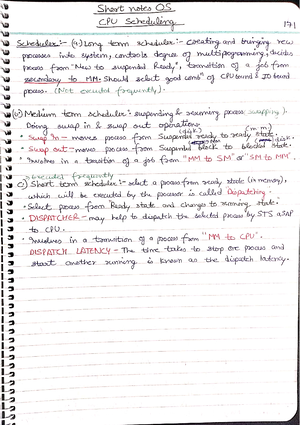 Short notes OS
CPU Scheduling
171
Scheduler:- (a) Long term scheduler:- creating and bringing new
processes into system, controls degree of multiprogramming, decides
process from "New to suspended Ready", transition of a job from
secondary to MM. Should select good comb" of CPU bound & IO bound
process. (Not executed frequently).
(b) Medium term scheduler: suspending & resuming process swapping).
Doing swap in & swap out operations.
(disk) (m m)
· Swap In - moves process from Suspended ready to ready state
· Swap out - moves process from Suspended block to blocked state.
· Involves in a transition of a job from "MM to SM" or "SM to MM".
executed frequently
c) Short term scheduler:- select a process from ready state (in memory),
which will be executed by the processor is called Dispatching.
· Select process from Ready state and changes to running state.
· DISPATCHER - may help to dispatch the selected process by STS ASAP
to CPU.
· Involves in a transition of a process from "MM to CPU".
DISPATCH LATENCY - The time takes to stop one process and
start another running is known as the dispatch latency.